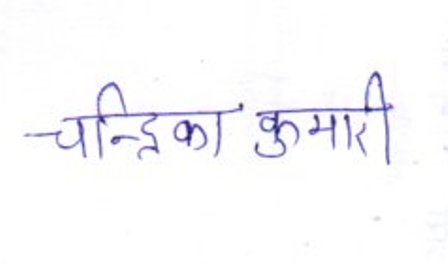 चन्द्रिका कुमारी